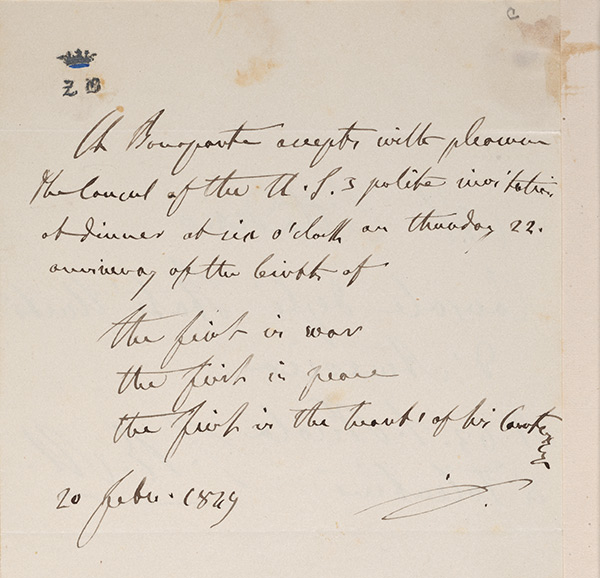 C
Z B
Ch Bonaparte accepts with pleasure
the Consul of the U. S.s polite invitation
at dinner at six o'clock on thursday 22.
anniversary of the birth of
the first in war
the first in peace
the first in the hearts of his Countrymen
20 febr. 1849